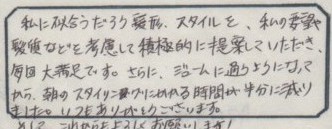 私に似合うだろう髪形、スタイルを、私の要望や
髪質などを考慮して積極的に提案していただき、
毎回大満足です。さらに、ジュームに通うようになって
から、朝のスタイリングにかける時間が半分に減り
ました。いつもありがとうございます。
そして、これからもよろしくお願いします!